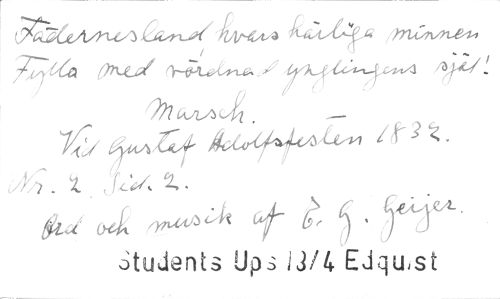 Fädernesland hvars härliga minnen
Fylla med vördnad ynglingens själ!
Marsch.
Vid Gustaf Adolfsfesten 1832.
Nr. 2 Sid. 2.
Ord och musik af E. G. Geijer.
Students Ups 13/4 Edquist